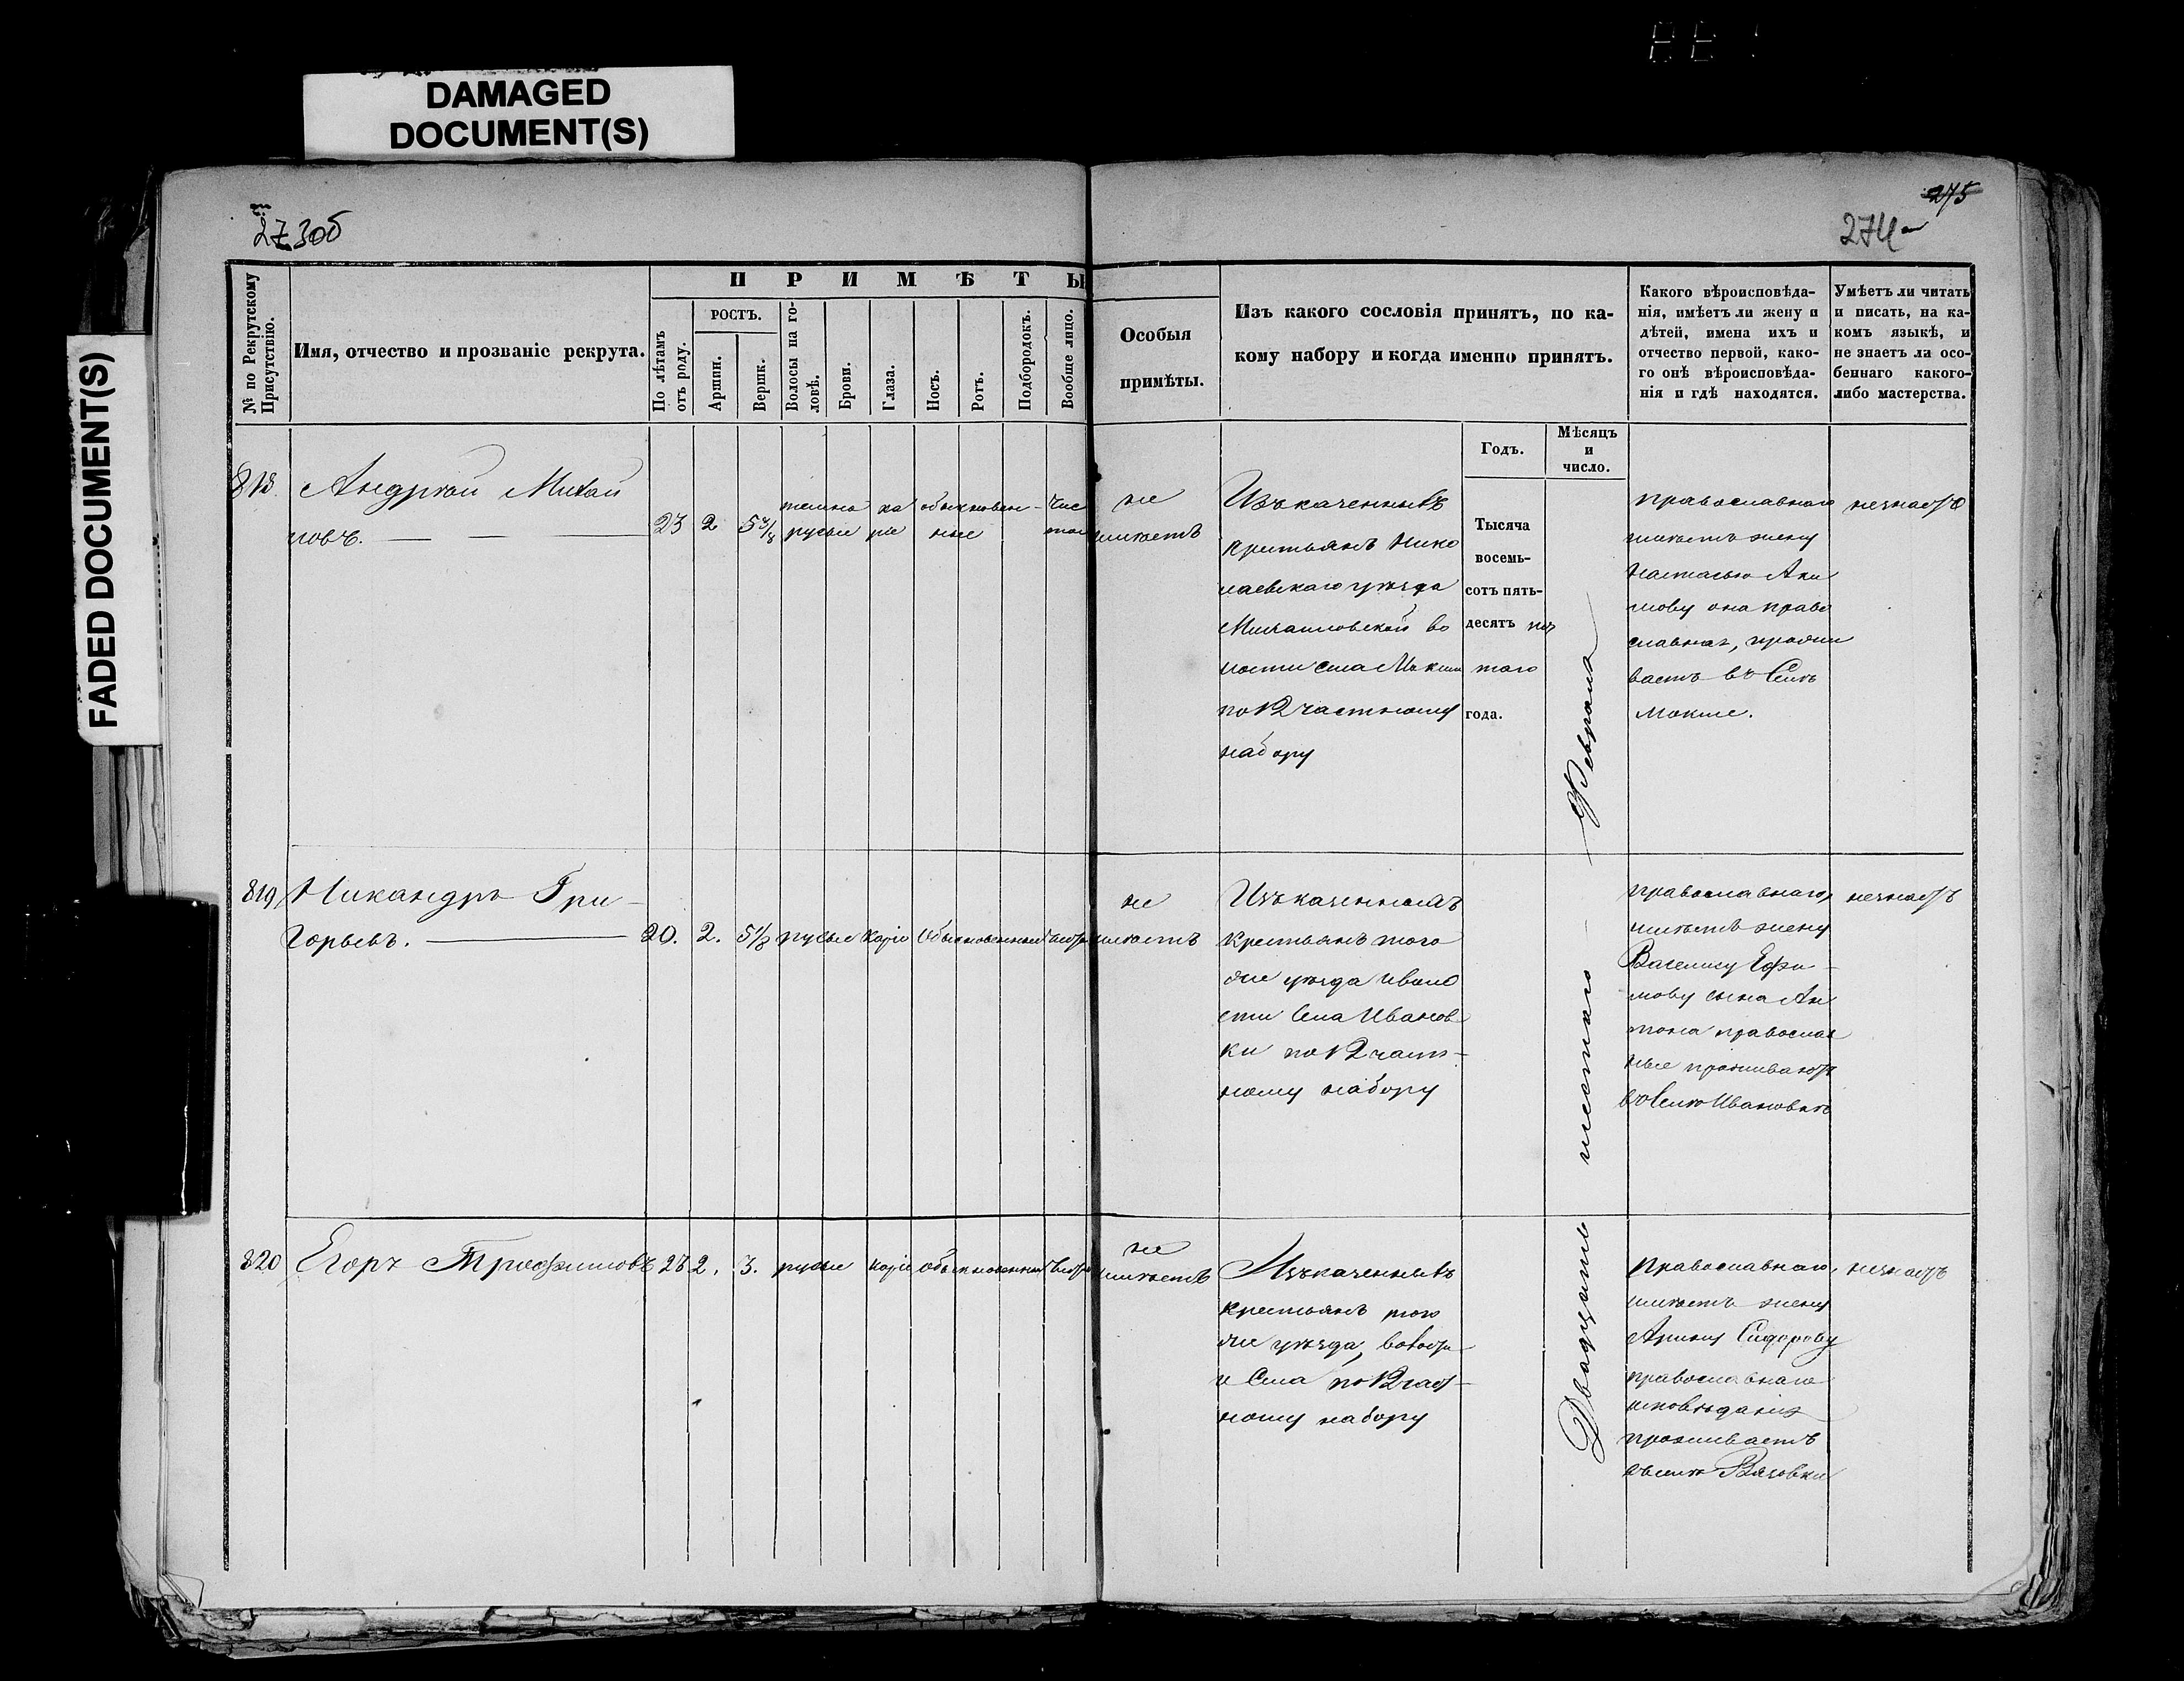 DAMAGED
DOCUMENT(S)
FADED DOCUMENT(S)
273об
275
274
№ по Рекрутскому
Присутствію.
Имя, отчество и прозваніе рекрута.
ПРИМѢТЫ
По лѣтамъ
отъ роду.
РОСТЪ.
Аршин.
Вершк.
Волосы на го-
ловѣ.
Брови.
Глаза.
Носъ.
Ротъ.
Подбородокъ.
Вообще лицо.
Особыя
примѣты.
Изъ какого сословія принятъ, по ка-
кому набору и когда именно принятъ.
Годъ.
Мѣсяцъ
и
число.
Какого вѣроисповѣда-
нія, имѣетъ ли жену и
дѣтей, имена ихъ и
отчество первой, како-
го онѣ вѣроисповѣда-
нія и гдѣ находятся.
Умѣетъ ли читать
и писать, на ка-
комъ языкѣ, и
не знаетъ ли осо-
беннаго какого-
либо мастерства.
818.
Андрей Михай
ловъ.
23
2
5 3/8
темно
русые
ка
ріе
обыкновен-
ные
чис
тое
не
имѣетъ
Изъ казенныхъ
крестьянъ Нико
лаевскаго уѣзда
Михайловской во
лости села Мокши
по 12 частному
набору
Тысяча
восемь-
сотъ пять-
десятъ пя
таго
года.
Двадцать шестаго Февраля
православнаго
имѣетъ жену
Настасью Аки
мову она право
славная, прожи
ваетъ въ Селѣ
Мокше.
незнаетъ
819
Никандръ Гри-
горьевъ.
20.
2.
5 1/8
русые
каріе
обыкновенные
чистое
не
имѣетъ
Изъ казенныхъ
крестьянъ того
же уѣзда и воло
сти Села Иванов
ки по 12 част-
ному набору
православнаго,
имѣетъ жену
Василису Ефи-
мову сына Ан
тона православ
ные проживаютъ
въ Селѣ Ивановкѣ
незнаетъ
820
Егоръ Трофимовъ
23
2.
3.
русые
каріе
обыкновенные
чистое
не
имѣетъ
Изъ казенныхъ
крестьянъ того
же уѣзда, волости
и Села по 12 част-
ному набору
Православнаго,
имѣетъ жену
Арину Сидорову
православнаго
исповѣданія
проживаетъ
въ селѣ Вязовки
незнаетъ